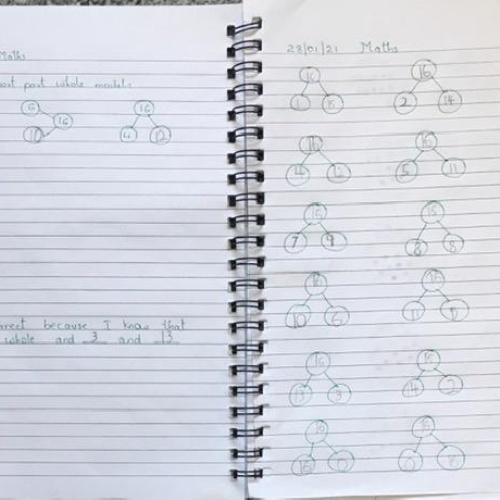 Maths
part whole models
6
16
10
16
4 12
because I know that
whole and 3 and 13
28/01/21 Maths
16 16
1 15 2 14
16 16
4 12 5 11
16 16
7 9 8 8
16 16
10 6 11
16 16
13 3 14 2
16 16
16 0 8